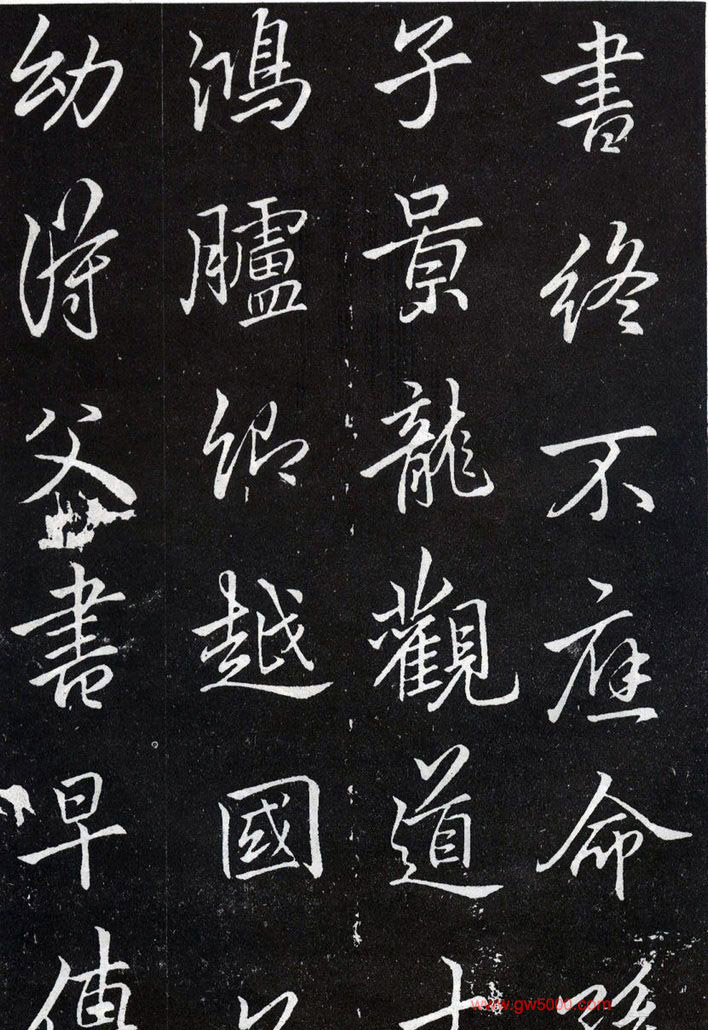 書終不應命
子景龍觀道士
鴻臚卿越國
幼得父書早傳
www.gw5000.com